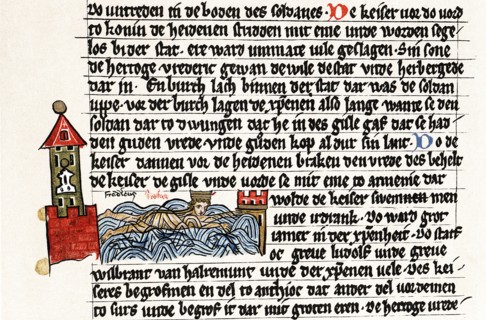 vntreden in de boden des soldanes. De keiser vor do vord
to konin de heidenen stridden mit eme vnde worden sege
los bi der stat. ere ward vnmate vile geslagen. Sin sone
de hertoge vrederic gewan de wile de stat vnde herbergede
dar in. En burch lach binnen der stat dar was de soldan
uppe. vor der burch lagen de xpenen also lange wante se den
soldan dar to dwungen dat he in des gisle gaf dar se had
den guden vrede vnde guden kop al dur sin lant. Do de
keiser dannen vor de heidenen braken den vrede des behelt
de keiser de gisle vnde vorde se mit eme to armenie dar
wolde de keiser swemmen
vnde irdrank. Do ward grot
iamer in der xpenheit. Do starf
oc greve ludolf vnde greve
wilbrant van halremunt vnde der xpenen vele. Des kei
seres begrofmen en del to anthioc dat ander del vordemen
to surs vnde begrof it dar mit groten eren. de hertoge vrede